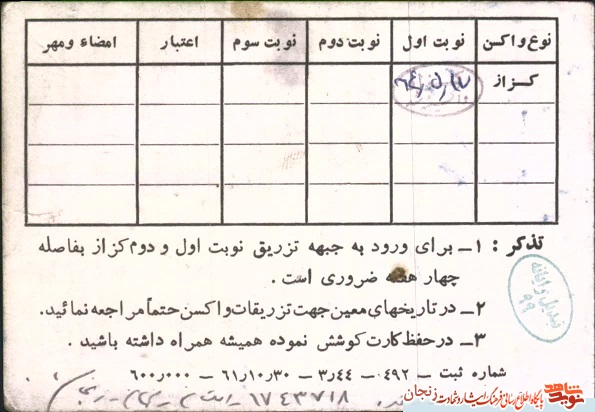 نوع واکسن نوبت اول نوبت دوم نوبت سوم اعتبار امضاء و مهر
کزاز ۶۴/۵/۱۷
تذکر : ۱ـ برای ورود به جبهه تزریق نوبت اول و دوم کزاز بفاصله
چهار هفته ضروری است .
۲ـ در تاریخهای معین جهت تزریقات واکسن حتماً مراجعه نمائید.
۳ـ در حفظ کارت کوشش نموده همیشه همراه داشته باشید .
شماره ثبت ـ ۴۹۲ ـ ۳٫۴۴ ـ ۶۱٫۱۰٫۳۰ ـ ۶۰۰٫۰۰۰
۶۷۴۳۷۱۸
پایگاه اطلاع رسانی فرهنگ ایثار و شهادت زنجان
نوید شاهد